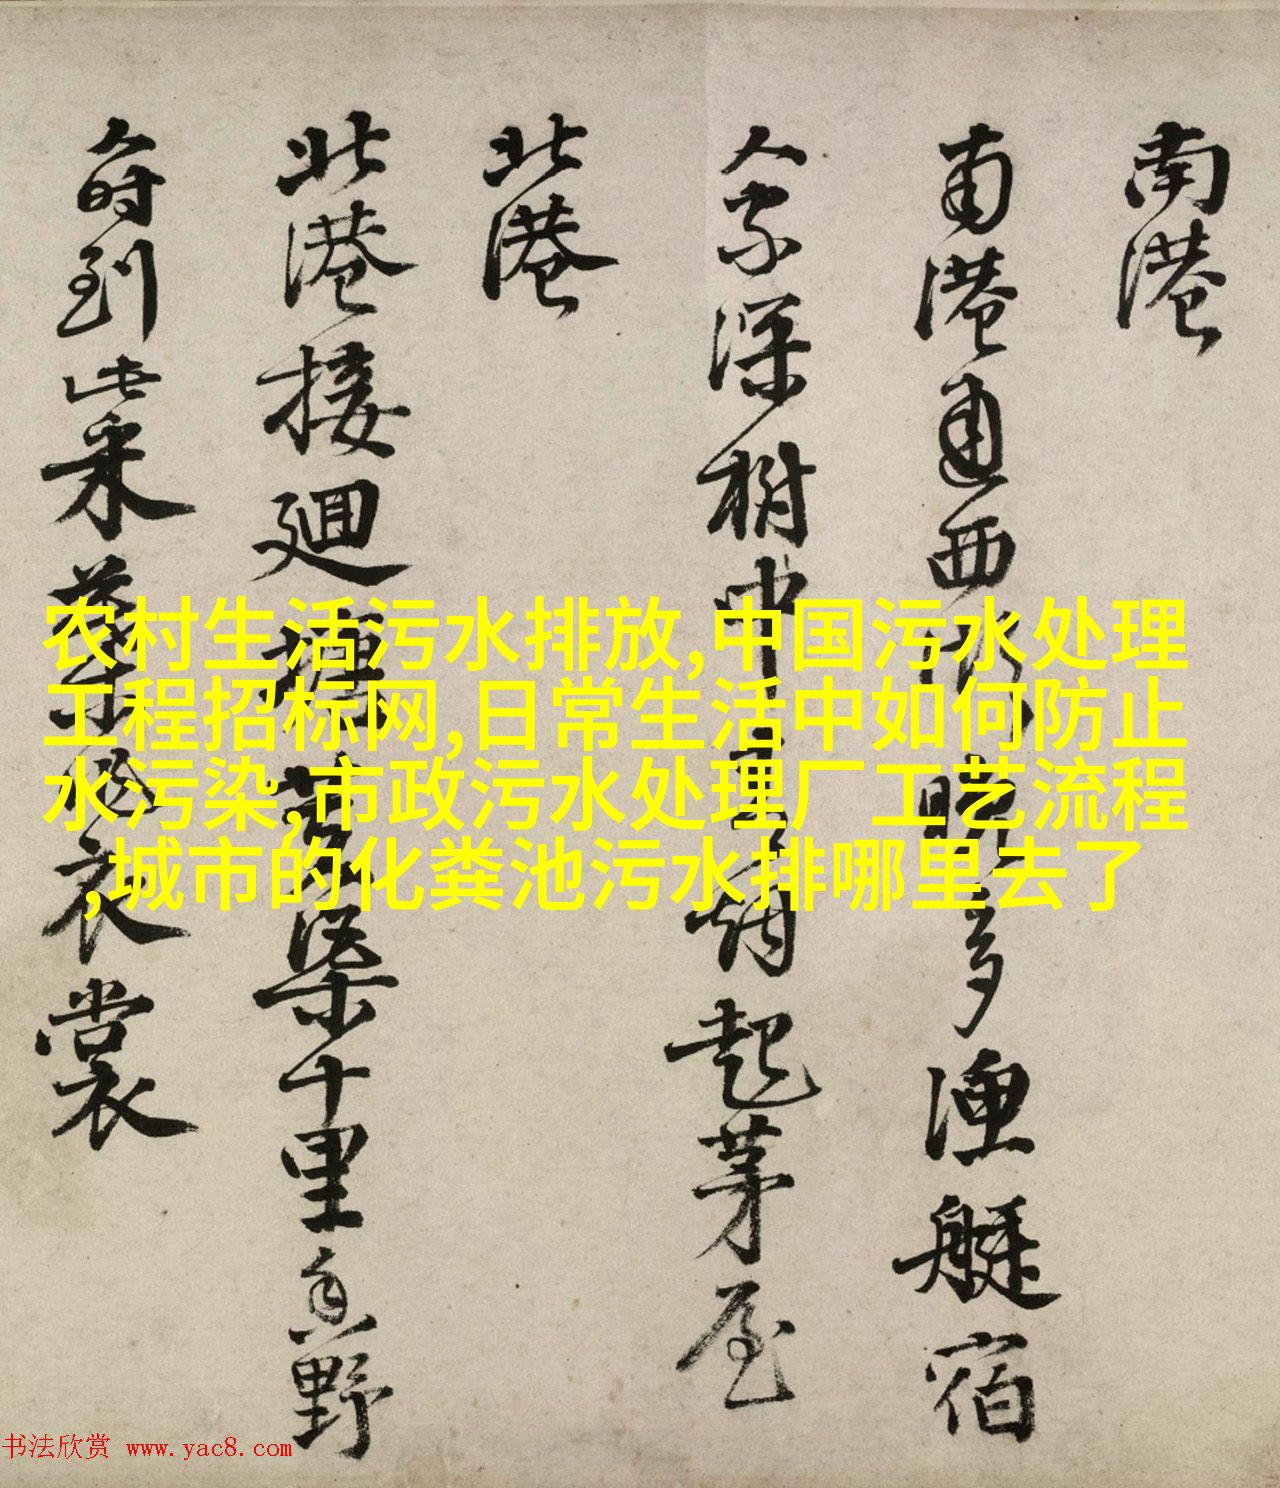 南港
南港通西湖晚多漁艇宿
人家深樹中青烟起茅屋
北港
北港接廻塘芙渠十里香野
人時到此采葉為衣裳
农村生活污水排放,中国污水处理
工程招标网,日常生活中如何防止
水污染,市政污水处理厂工艺流程
,城市的化粪池污水排哪里去了
书法欣赏 www.yac8.com